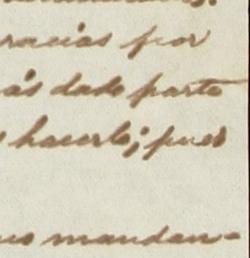 racias por
ás dado parte
hacerlo; pues
mandan-